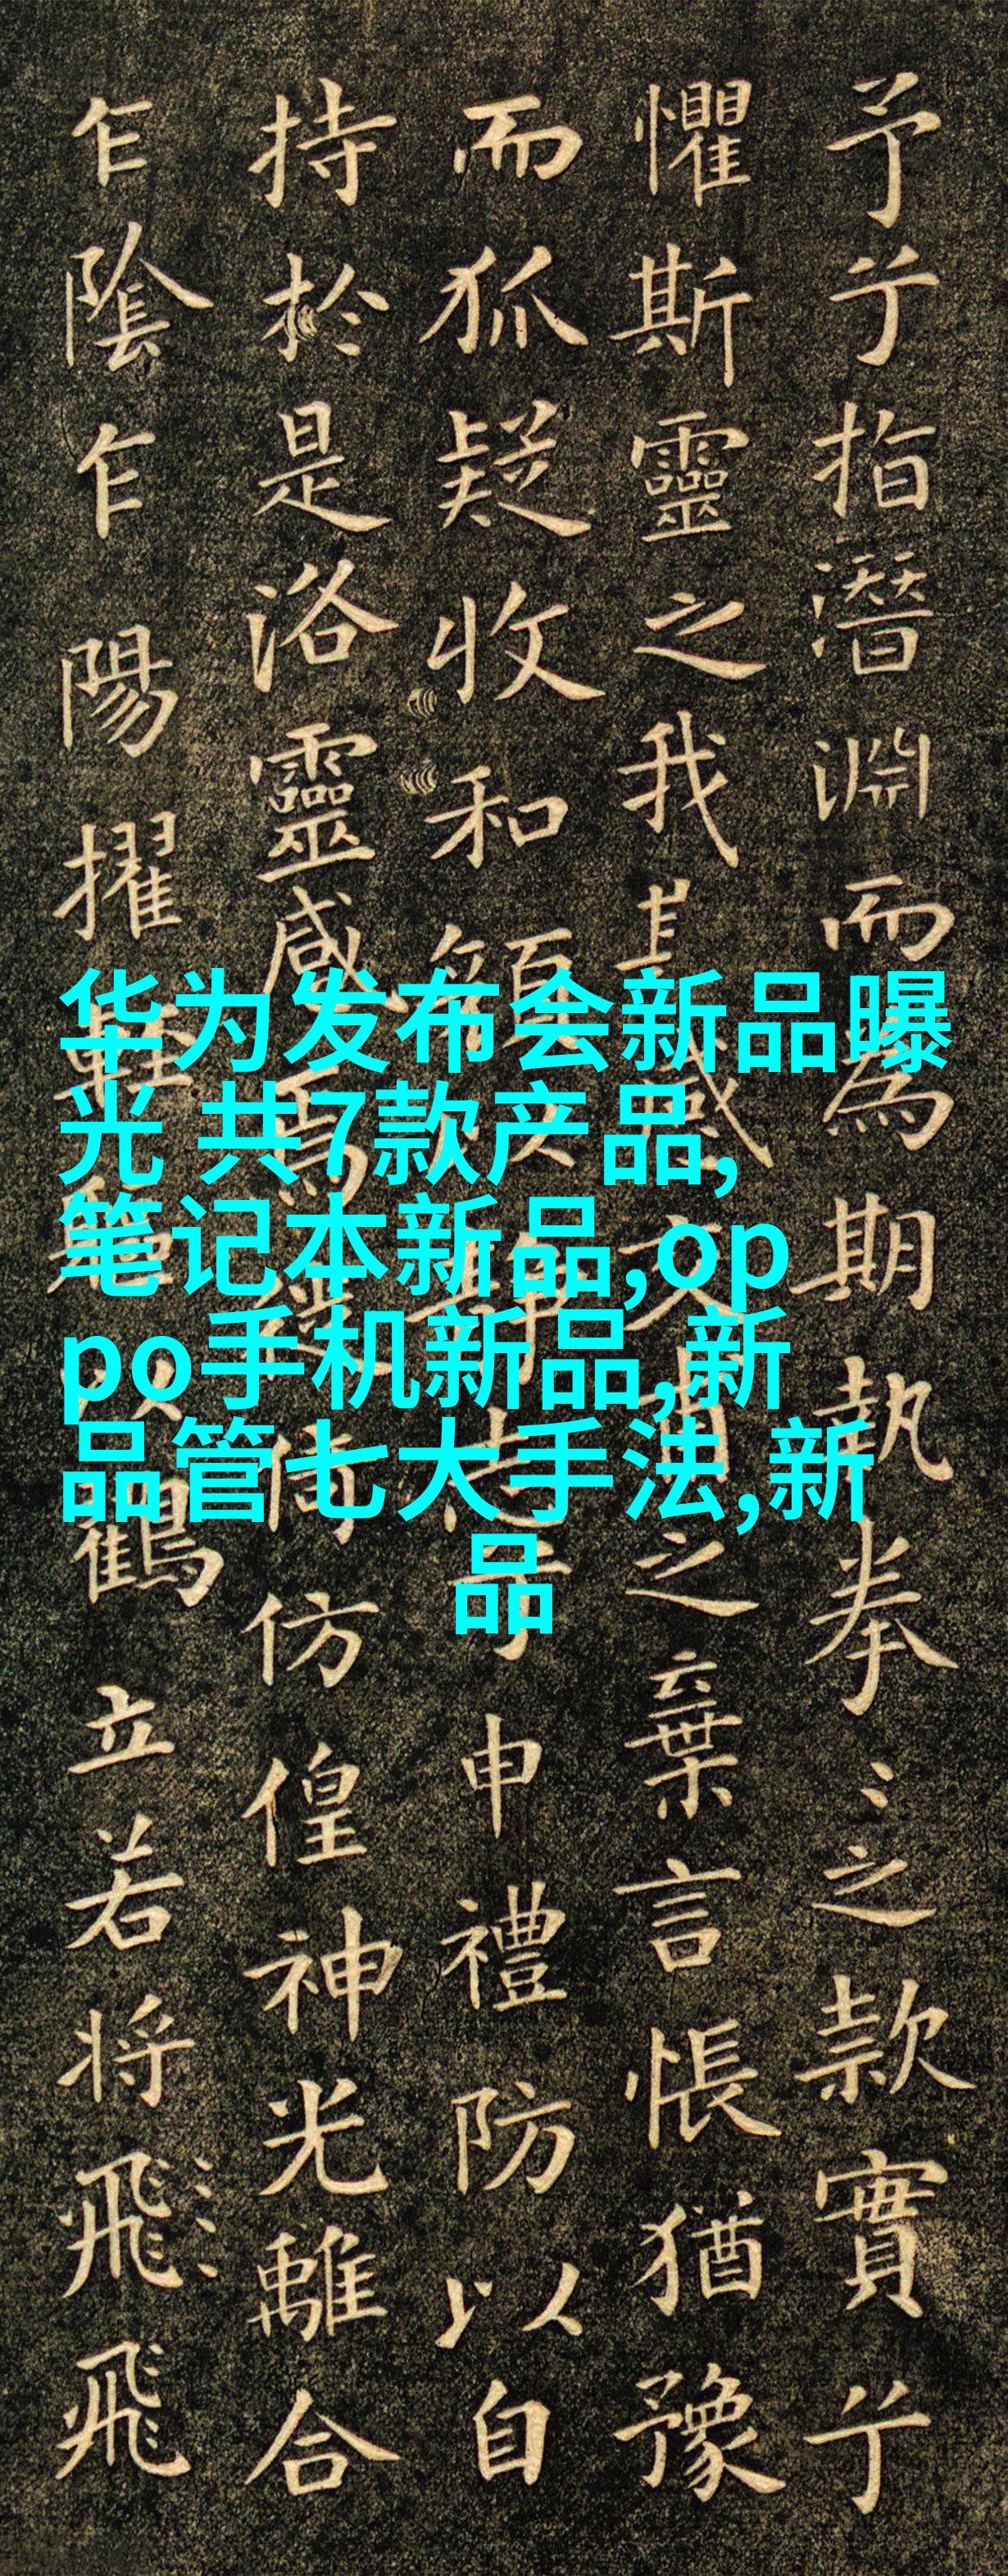 予兮指潛淵而為期執拳〻之款實兮
懼斯靈之我感交甫之棄言悵猶豫
而狐疑收和顏靜志兮申禮防以自
持於是洛靈感焉徙倚仿偟神光離合
乍陰乍陽擢輕軀以鶴立若將飛飛
华为发布会新品曝
光 共7款产品,
笔记本新品,op
po手机新品,新
品管七大手法,新
品